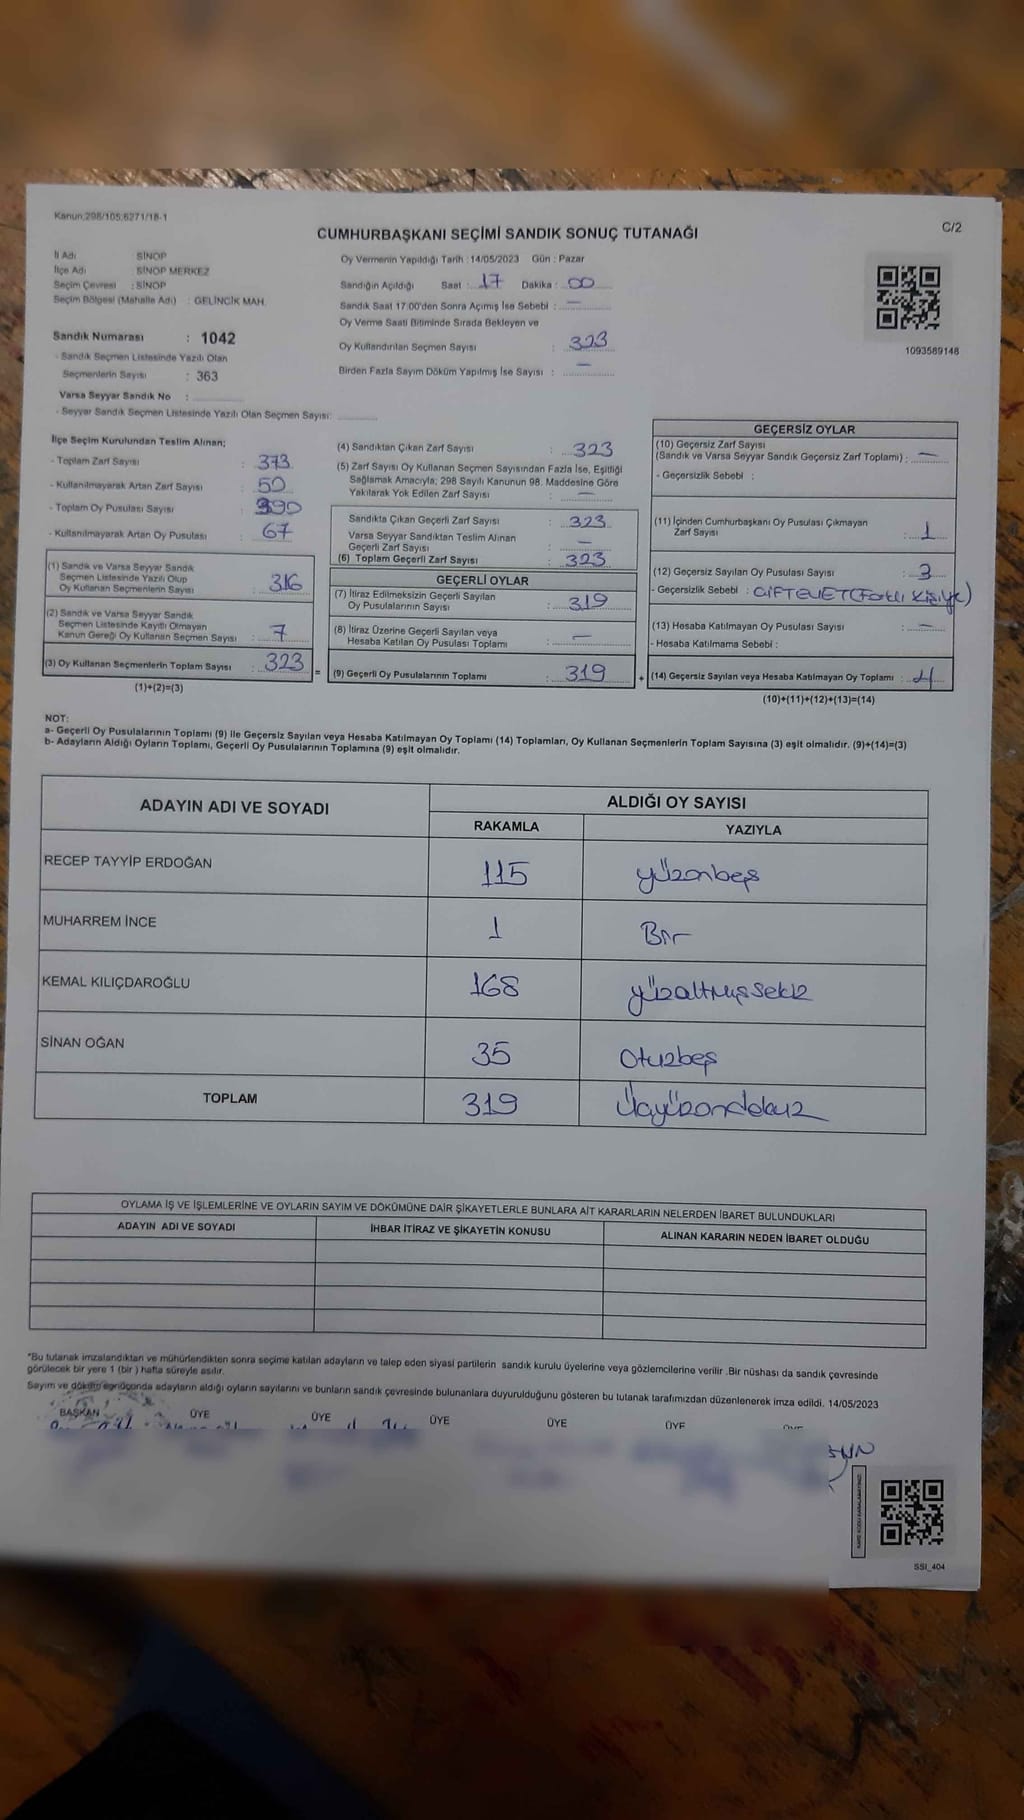 Kanun;298/105;6271/18-1
C/2
CUMHURBAŞKANI SEÇİMİ SANDIK SONUÇ TUTANAĞI
İl Adı : SİNOP
İlçe Adı : SİNOP MERKEZ
Seçim Çevresi : SİNOP
Seçim Bölgesi (Mahalle Adı) : GELİNCİK MAH.
Sandık Numarası : 1042
- Sandık Seçmen Listesinde Yazılı Olan
Seçmenlerin Sayısı : 363
Varsa Seyyar Sandık No :
- Seyyar Sandık Seçmen Listesinde Yazılı Olan Seçmen Sayısı:
Oy Vermenin Yapıldığı Tarih :14/05/2023 Gün : Pazar
Sandığın Açıldığı Saat : 17 Dakika : 00
Sandık Saat 17.00'den Sonra Açmış İse Sebebi : —
Oy Verme Saati Bitiminde Sırada Bekleyen ve
Oy Kullandırılan Seçmen Sayısı : 323
Birden Fazla Sayım Döküm Yapılmış İse Sayısı : —
1093589148
İlçe Seçim Kurulundan Teslim Alınan;
- Toplam Zarf Sayısı : 373
- Kullanılmayarak Artan Zarf Sayısı : 50
- Toplam Oy Pusulası Sayısı : 390
- Kullanılmayarak Artan Oy Pusulası : 67
(1) Sandık ve Varsa Seyyar Sandık
Seçmen Listesinde Yazılı Olup
Oy Kullanan Seçmenlerin Sayısı : 316
(2) Sandık ve Varsa Seyyar Sandık
Seçmen Listesinde Kayıtlı Olmayan
Kanun Gereği Oy Kullanan Seçmen Sayısı : 7
(3) Oy Kullanan Seçmenlerin Toplam Sayısı : 323 =
(1)+(2)=(3)
(4) Sandıktan Çıkan Zarf Sayısı : 323
(5) Zarf Sayısı Oy Kullanan Seçmen Sayısından Fazla İse, Eşitliği
Sağlamak Amacıyla; 298 Sayılı Kanunun 98. Maddesine Göre
Yakılarak Yok Edilen Zarf Sayısı : —
Sandıkta Çıkan Geçerli Zarf Sayısı : 323
Varsa Seyyar Sandıktan Teslim Alınan
Geçerli Zarf Sayısı : —
(6) Toplam Geçerli Zarf Sayısı : 323
GEÇERLİ OYLAR
(7) İtiraz Edilmeksizin Geçerli Sayılan
Oy Pusulalarının Sayısı : 319
(8) İtiraz Üzerine Geçerli Sayılan veya
Hesaba Katılan Oy Pusulası Toplamı : —
(9) Geçerli Oy Pusulalarının Toplamı : 319 +
GEÇERSİZ OYLAR
(10) Geçersiz Zarf Sayısı
(Sandık ve Varsa Seyyar Sandık Geçersiz Zarf Toplamı) : —
- Geçersizlik Sebebi :
(11) İçinden Cumhurbaşkanı Oy Pusulası Çıkmayan
Zarf Sayısı : 1
(12) Geçersiz Sayılan Oy Pusulası Sayısı : 3
- Geçersizlik Sebebi : ÇİFT EVET (Farklı Kişiye)
(13) Hesaba Katılmayan Oy Pusulası Sayısı : —
- Hesaba Katılmama Sebebi :
(14) Geçersiz Sayılan veya Hesaba Katılmayan Oy Toplamı : 4
(10)+(11)+(12)+(13)=(14)
NOT:
a- Geçerli Oy Pusulalarının Toplamı (9) ile Geçersiz Sayılan veya Hesaba Katılmayan Oy Toplamı (14) Toplamları, Oy Kullanan Seçmenlerin Toplam Sayısına (3) eşit olmalıdır. (9)+(14)=(3)
b- Adayların Aldığı Oyların Toplamı, Geçerli Oy Pusulalarının Toplamına (9) eşit olmalıdır.
ADAYIN ADI VE SOYADI
ALDIĞI OY SAYISI
RAKAMLA YAZIYLA
RECEP TAYYİP ERDOĞAN 115 yüzonbeş
MUHARREM İNCE 1 Bir
KEMAL KILIÇDAROĞLU 168 yüzaltmışsekiz
SİNAN OĞAN 35 Otuzbeş
TOPLAM 319 Üçyüzondokuz
OYLAMA İŞ VE İŞLEMLERİNE VE OYLARIN SAYIM VE DÖKÜMÜNE DAİR ŞİKAYETLERLE BUNLARA AİT KARARLARIN NELERDEN İBARET BULUNDUKLARI
ADAYIN ADI VE SOYADI İHBAR İTİRAZ VE ŞİKAYETİN KONUSU ALINAN KARARIN NEDEN İBARET OLDUĞU
"Bu tutanak imzalandıktan ve mühürlendikten sonra seçime katılan adayların ve talep eden siyasi partilerin sandık kurulu üyelerine veya gözlemcilerine verilir .Bir nüshası da sandık çevresinde
görülecek bir yere 1 (bir ) hafta süreyle asılır.
Sayım ve döküm sonucunda adayların aldığı oyların sayılarını ve bunların sandık çevresinde bulunanlara duyurulduğunu gösteren bu tutanak tarafımızdan düzenlenerek imza edildi. 14/05/2023
BAŞKAN ÜYE ÜYE ÜYE ÜYE ÜYE ÜYE
SSI_404